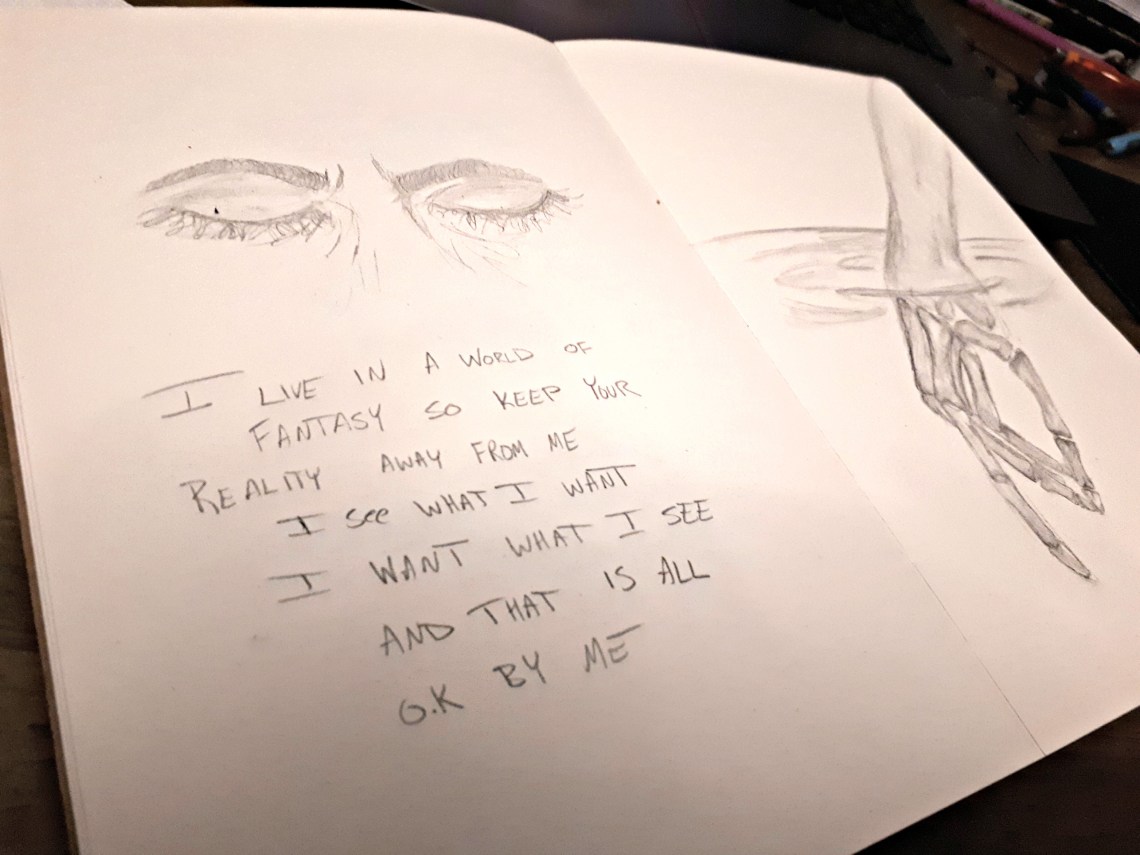 I LIVE IN A WORLD OF
FANTASY SO KEEP YOUR
REALITY AWAY FROM ME
I see WHAT I WANT
I WANT WHAT I SEE
AND THAT IS ALL
O.K BY ME